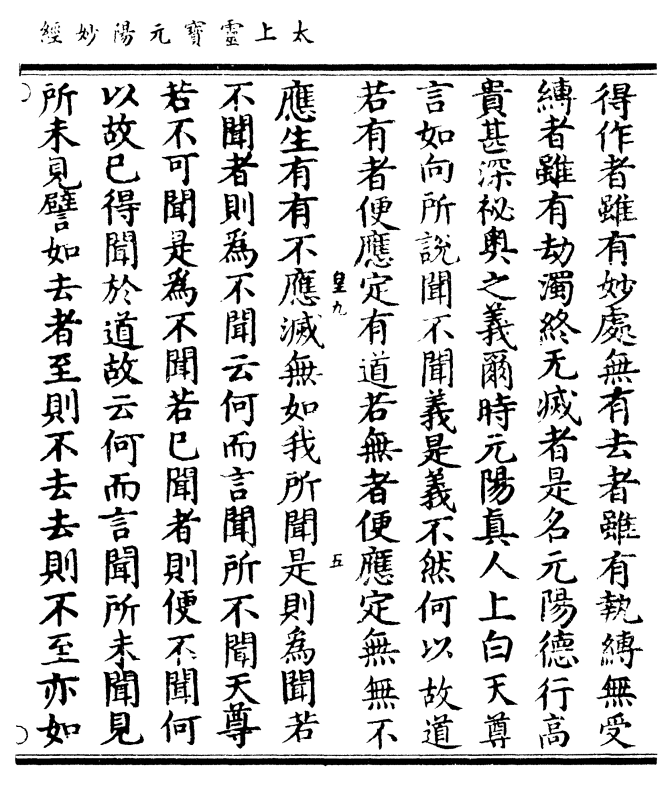 太上靈寶元陽妙經
得作者雖有妙處無有去者雖有執縛無受
縛者雖有劫濁終无滅者是名元陽德行高
貴甚深祕奧之義爾時元陽真人上白天尊
言如向所説聞不聞義是義不然何以故道
若有者便應定有道若無者便應定無無不
皇九
五
應生有有不應滅無如我所聞是則為聞若
不聞者則為不聞云何而言聞所不聞天尊
若不可聞是為不聞若已聞者則便不聞何
以故已得聞於道故云何而言聞所未聞見
所未見譬如去者至則不去去則不至亦如